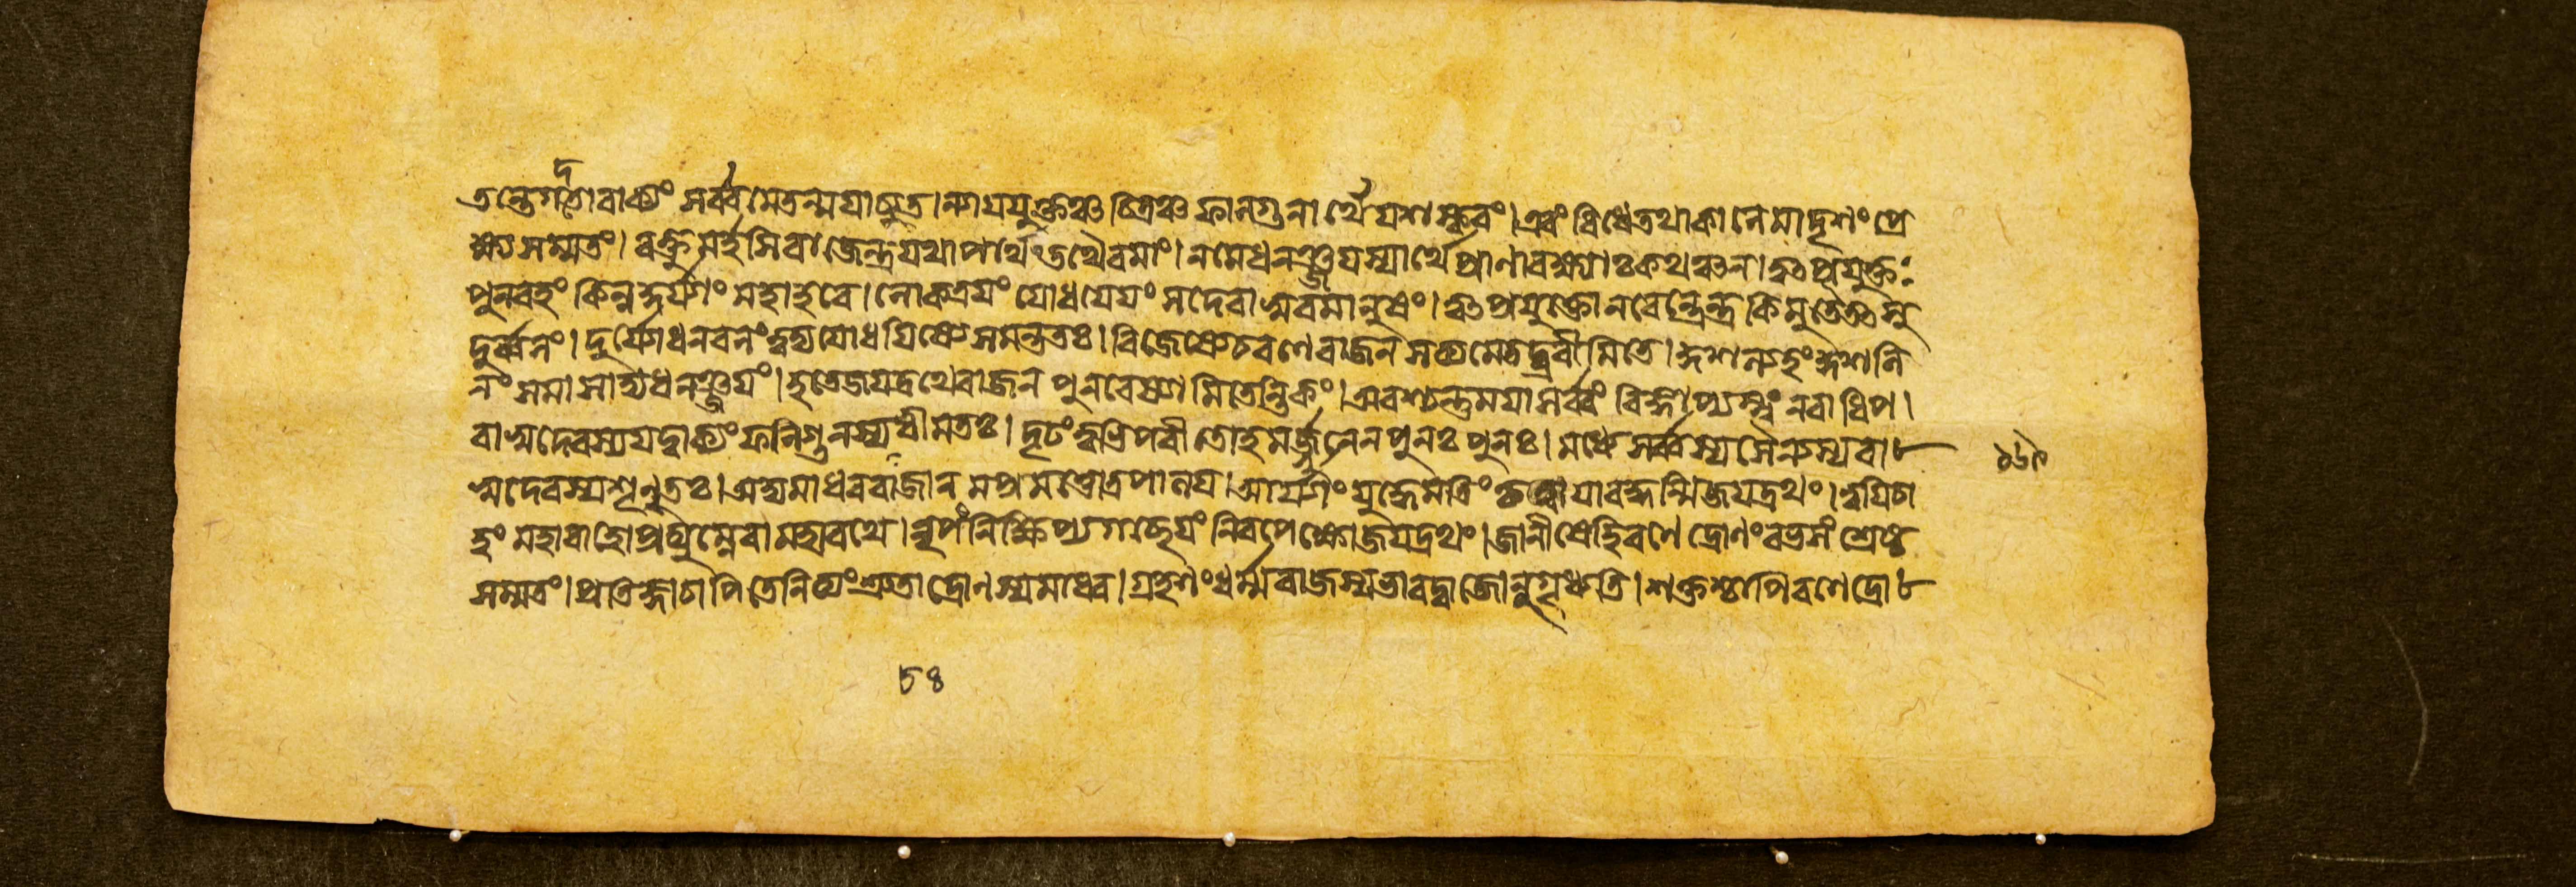 তন্তে গদতো বাক্যং সর্ব্বমেতন্ময়াচ্যুত। ন্যায়যুক্তঞ্চ চিত্রঞ্চ ফালগুনার্থে যশস্করং। এবং বিধে তথা কালে মাদৃশং প্রে
ক্ষ্য সম্মতং। বক্তুমর্হসি রাজেন্দ্র যথা পার্থং তথৈব মাং। ন মে ধনঞ্জয়স্যার্থে প্রাণা রক্ষ্যাঃ কথঞ্চন। ত্বৎপ্রযুক্তঃ
পুনরহং কিন্ন কুর্য্যাং মহাহবে। লোকত্রয়ং যোধয়েয়ং সদেবাসুরমানুষং। ত্বৎপ্রযুক্তো নরেন্দ্রেন্দ্র কিমুতৈতৎসু
দুর্ব্বলং। দুর্য্যোধনবলং ত্বদ্য যোধয়িষ্যে সমন্ততঃ। বিজেষ্যে চ রণে রাজন সত্যমেতদ্ব্রবীমি তে। কুশল্যহং কুশলি
নং সমাসাদ্য ধনঞ্জয়ং। হতে জয়দ্রথে রাজন পুনরেষ্যামি তেন্তিকং। অবশ্যন্তু ময়া সর্ব্বং বিজ্ঞাপ্যস্ত্বং নরাধিপ।
বাসুদেবস্য যদ্বাক্যং ফলিগুনস্য চ ধীমতঃ। দৃঢং ত্বভিপরীতোহমর্জ্জুনেন পুনঃ পুনঃ। মধ্যে সর্ব্বস্য সৈন্যস্য বা
সুদেবস্য শৃন্বতঃ। অদ্য মাধব রাজানমপ্রমত্তোত্র পালয়। আর্য্যাং যুদ্ধে মতিং কৃত্বা যাবদ্ধন্মি জয়দ্রথং। ত্বয়ি চা
হং মহাবাহো প্রদ্যুম্নে বা মহারথে। নৃপং নিক্ষিপ্য গচ্ছেয়ং নিরপেক্ষো জয়দ্রথং। জানীষে হি রণে দ্রোণং রভসং শ্রেষ্ঠ
সম্মতং। প্রতিজ্ঞা চাপি তে নিত্যং শ্রুতা দ্রোনস্য মাধব। গ্রহণং ধর্ম্মরাজস্য ভারদ্বাজোনুগৃধ্যতি। শক্তশ্চাপি রণে দ্রো